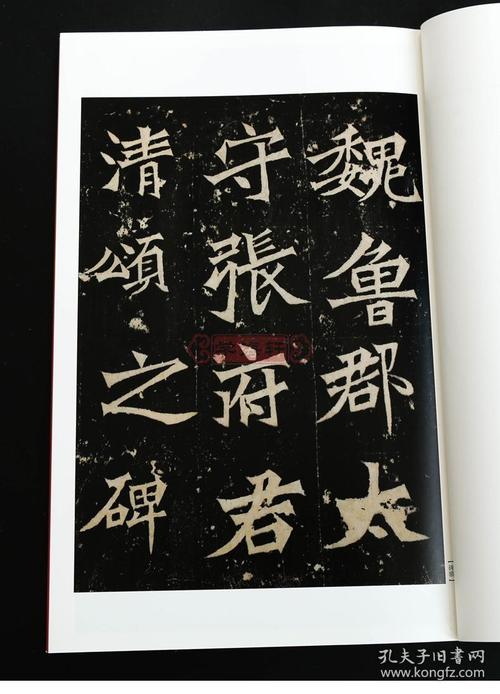 魏魯郡太
守張府君
清頌之碑
孔夫子旧书网
www.kongfz.com